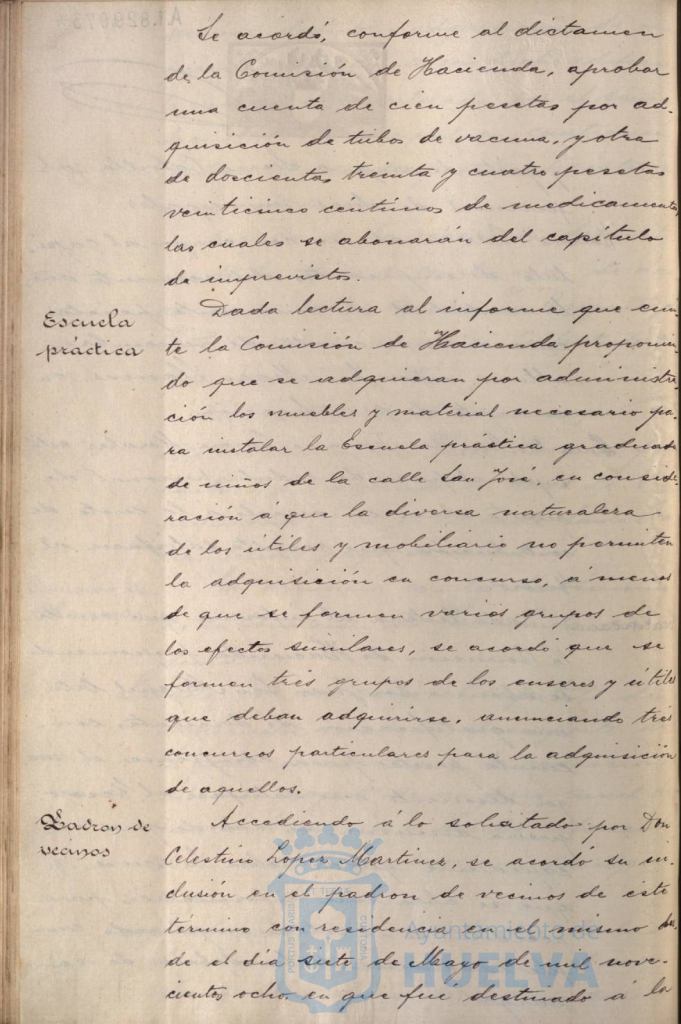 Se acordó, conforme al dictamen
de la Comisión de Hacienda, aprobar
una cuenta de cien pesetas por ad-
quisición de tubos de vacuna, y otra
de doscientas treinta y cuatro pesetas
veinticinco céntimos de medicamentos,
las cuales se abonarán del capítulo
de imprevistos.
Escuela
práctica
Dada lectura al informe que emi-
te la Comisión de Hacienda proponien-
do que se adquieran por administra-
ción los muebles y material necesario pa-
ra instalar la Escuela práctica graduada
de niños de la calle San José, en conside-
ración á que la diversa naturaleza
de los útiles y mobiliario no permiten
la adquisición en concurso, á menos
de que se formen varios grupos de
los efectos similares, se acordó que se
formen tres grupos de los enseres y útiles
que deban adquirirse, anunciando tres
concursos particulares para la adquisición
de aquellos.
Padrón de
vecinos
Accediendo á lo solicitado por Don
Celestino Lopez Martinez, se acordó su in-
clusión en el padron de vecinos de este
término con residencia en el mismo des-
de el día siete de Mayo de mil nove-
cientos ocho, en que fué destinado á la
Ayuntamiento de
HUELVA